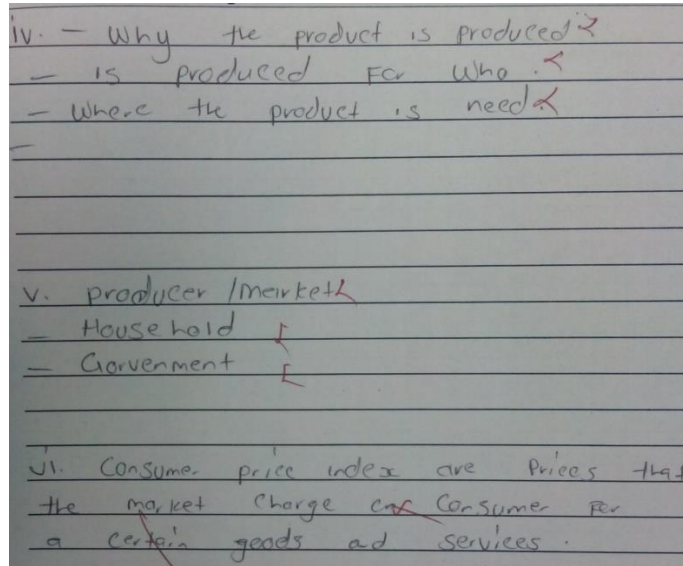 iv. - Why the product is produced
- is produced For Who.
- Where the product is need
-
v. producer / market
- Household
- Gorvenment
vi. Consumer price index are Prices that
the market Charge Consumer For
a certain goods ad services.